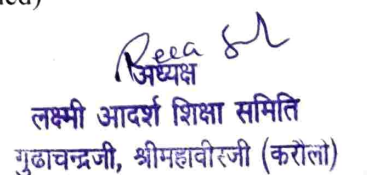 अध्यक्ष
लक्ष्मी आदर्श शिक्षा समिति
गुढाचन्द्रजी, श्रीमहावीरजी (करौली)